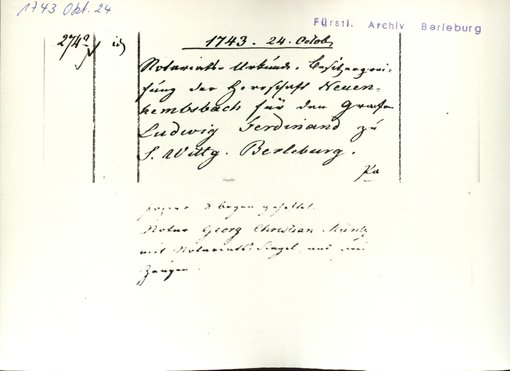 1743 Okt. 24
Fürstl. Archiv Berleburg
274
1743. 24. Octob.
Notariats-Urkunde, Besitzergrei-
fung der Herrschaft Neuen-
für den Grafen
Ludwig Ferdinand zu
S. Wittg. Berleburg.
papier 3 bogen geheftet.
Notar Georg Christian
mit Notariats-Siegel und
Zeugen.